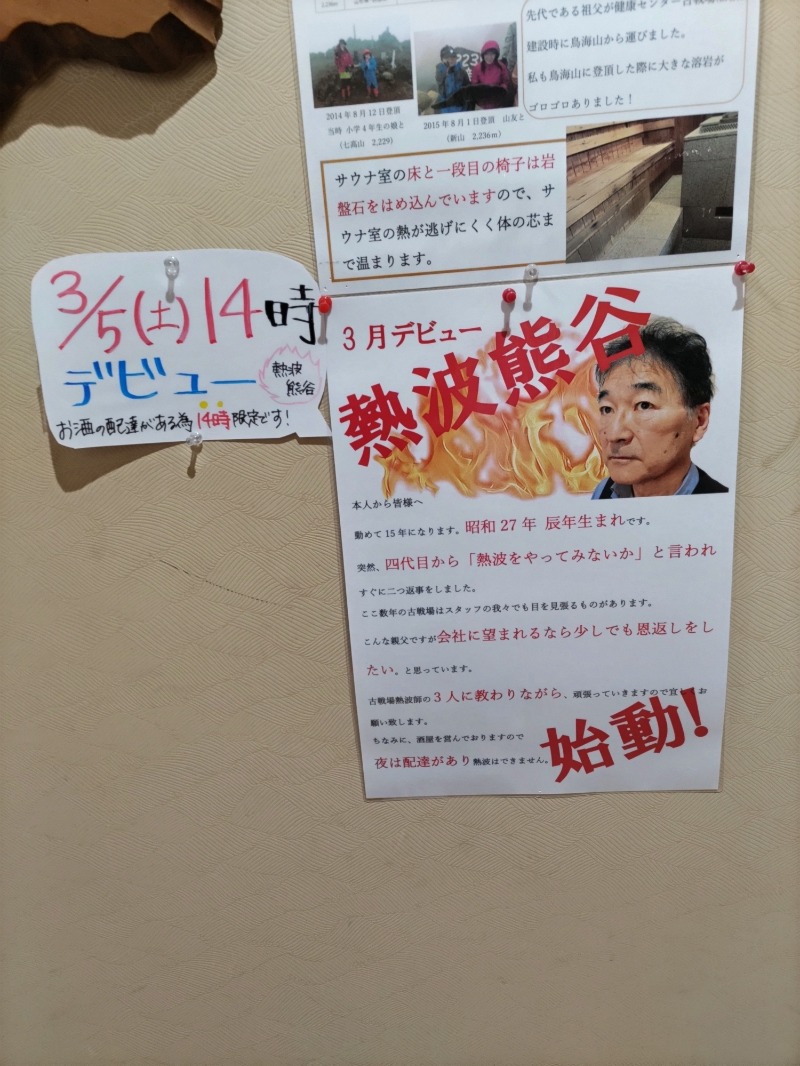 先代である祖父が健康センター古戦場
建設時に鳥海山から運びました。
私も鳥海山に登頂した際に大きな溶岩が
ゴロゴロありました！
2014年8月12日登頂
当時 小学4年生の娘と
（七高山 2,229）
2015年8月1日登頂 山友と
（新山 2,236m）
サウナ室の床と一段目の椅子は岩
盤石をはめ込んでいますので、サ
ウナ室の熱が逃げにくく体の芯ま
で温まります。
3/5(土)14時
デビュー
熱波
熊谷
お酒の配達がある為14時限定です!
3月デビュー
熱波熊谷
本人から皆様へ
勤めて15年になります。昭和27年 辰年生まれです。
突然、四代目から「熱波をやってみないか」と言われ
すぐに二つ返事をしました。
ここ数年の古戦場はスタッフの我々でも目を見張るものがあります。
こんな親父ですが会社に望まれるなら少しでも恩返しをし
たい。と思っています。
古戦場熱波師の3人に教わりながら、頑張っていきますので宜しくお
願い致します。
ちなみに、酒屋を営んでおりますので
夜は配達があり熱波はできません。
始動!